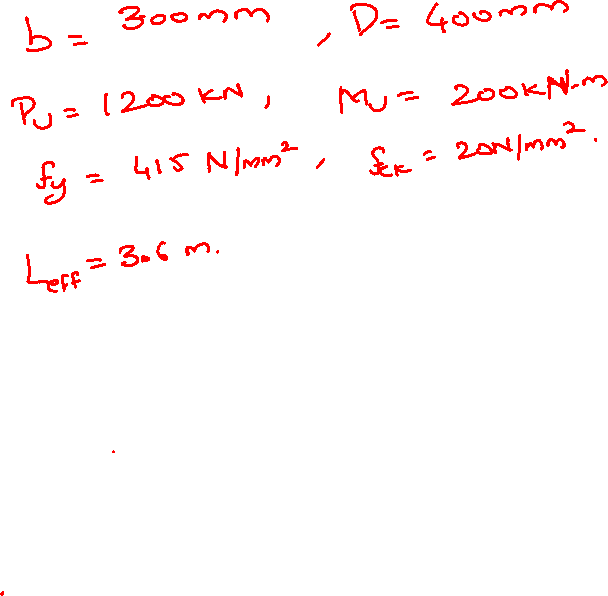 b = 300mm , D= 400mm
Pu = 1200 KN , Mu = 200KN.m
fy = 415 N/mm² , fck = 20N/mm².
Leff = 3.6 m.